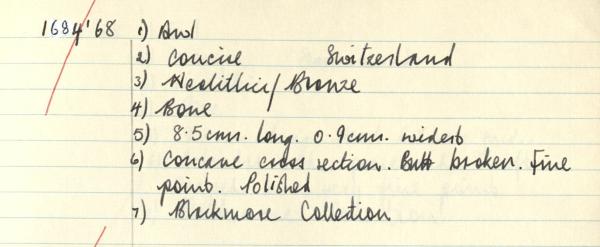 1684'68 1) Awl
2) Concise Switzerland
3) Neolithic/Bronze
4) Bone
5) 8.5cms. long. 0.9cms. widest
6) Concave cross section. Butt broken. Fine
point. Polished
7) Blackmore Collection